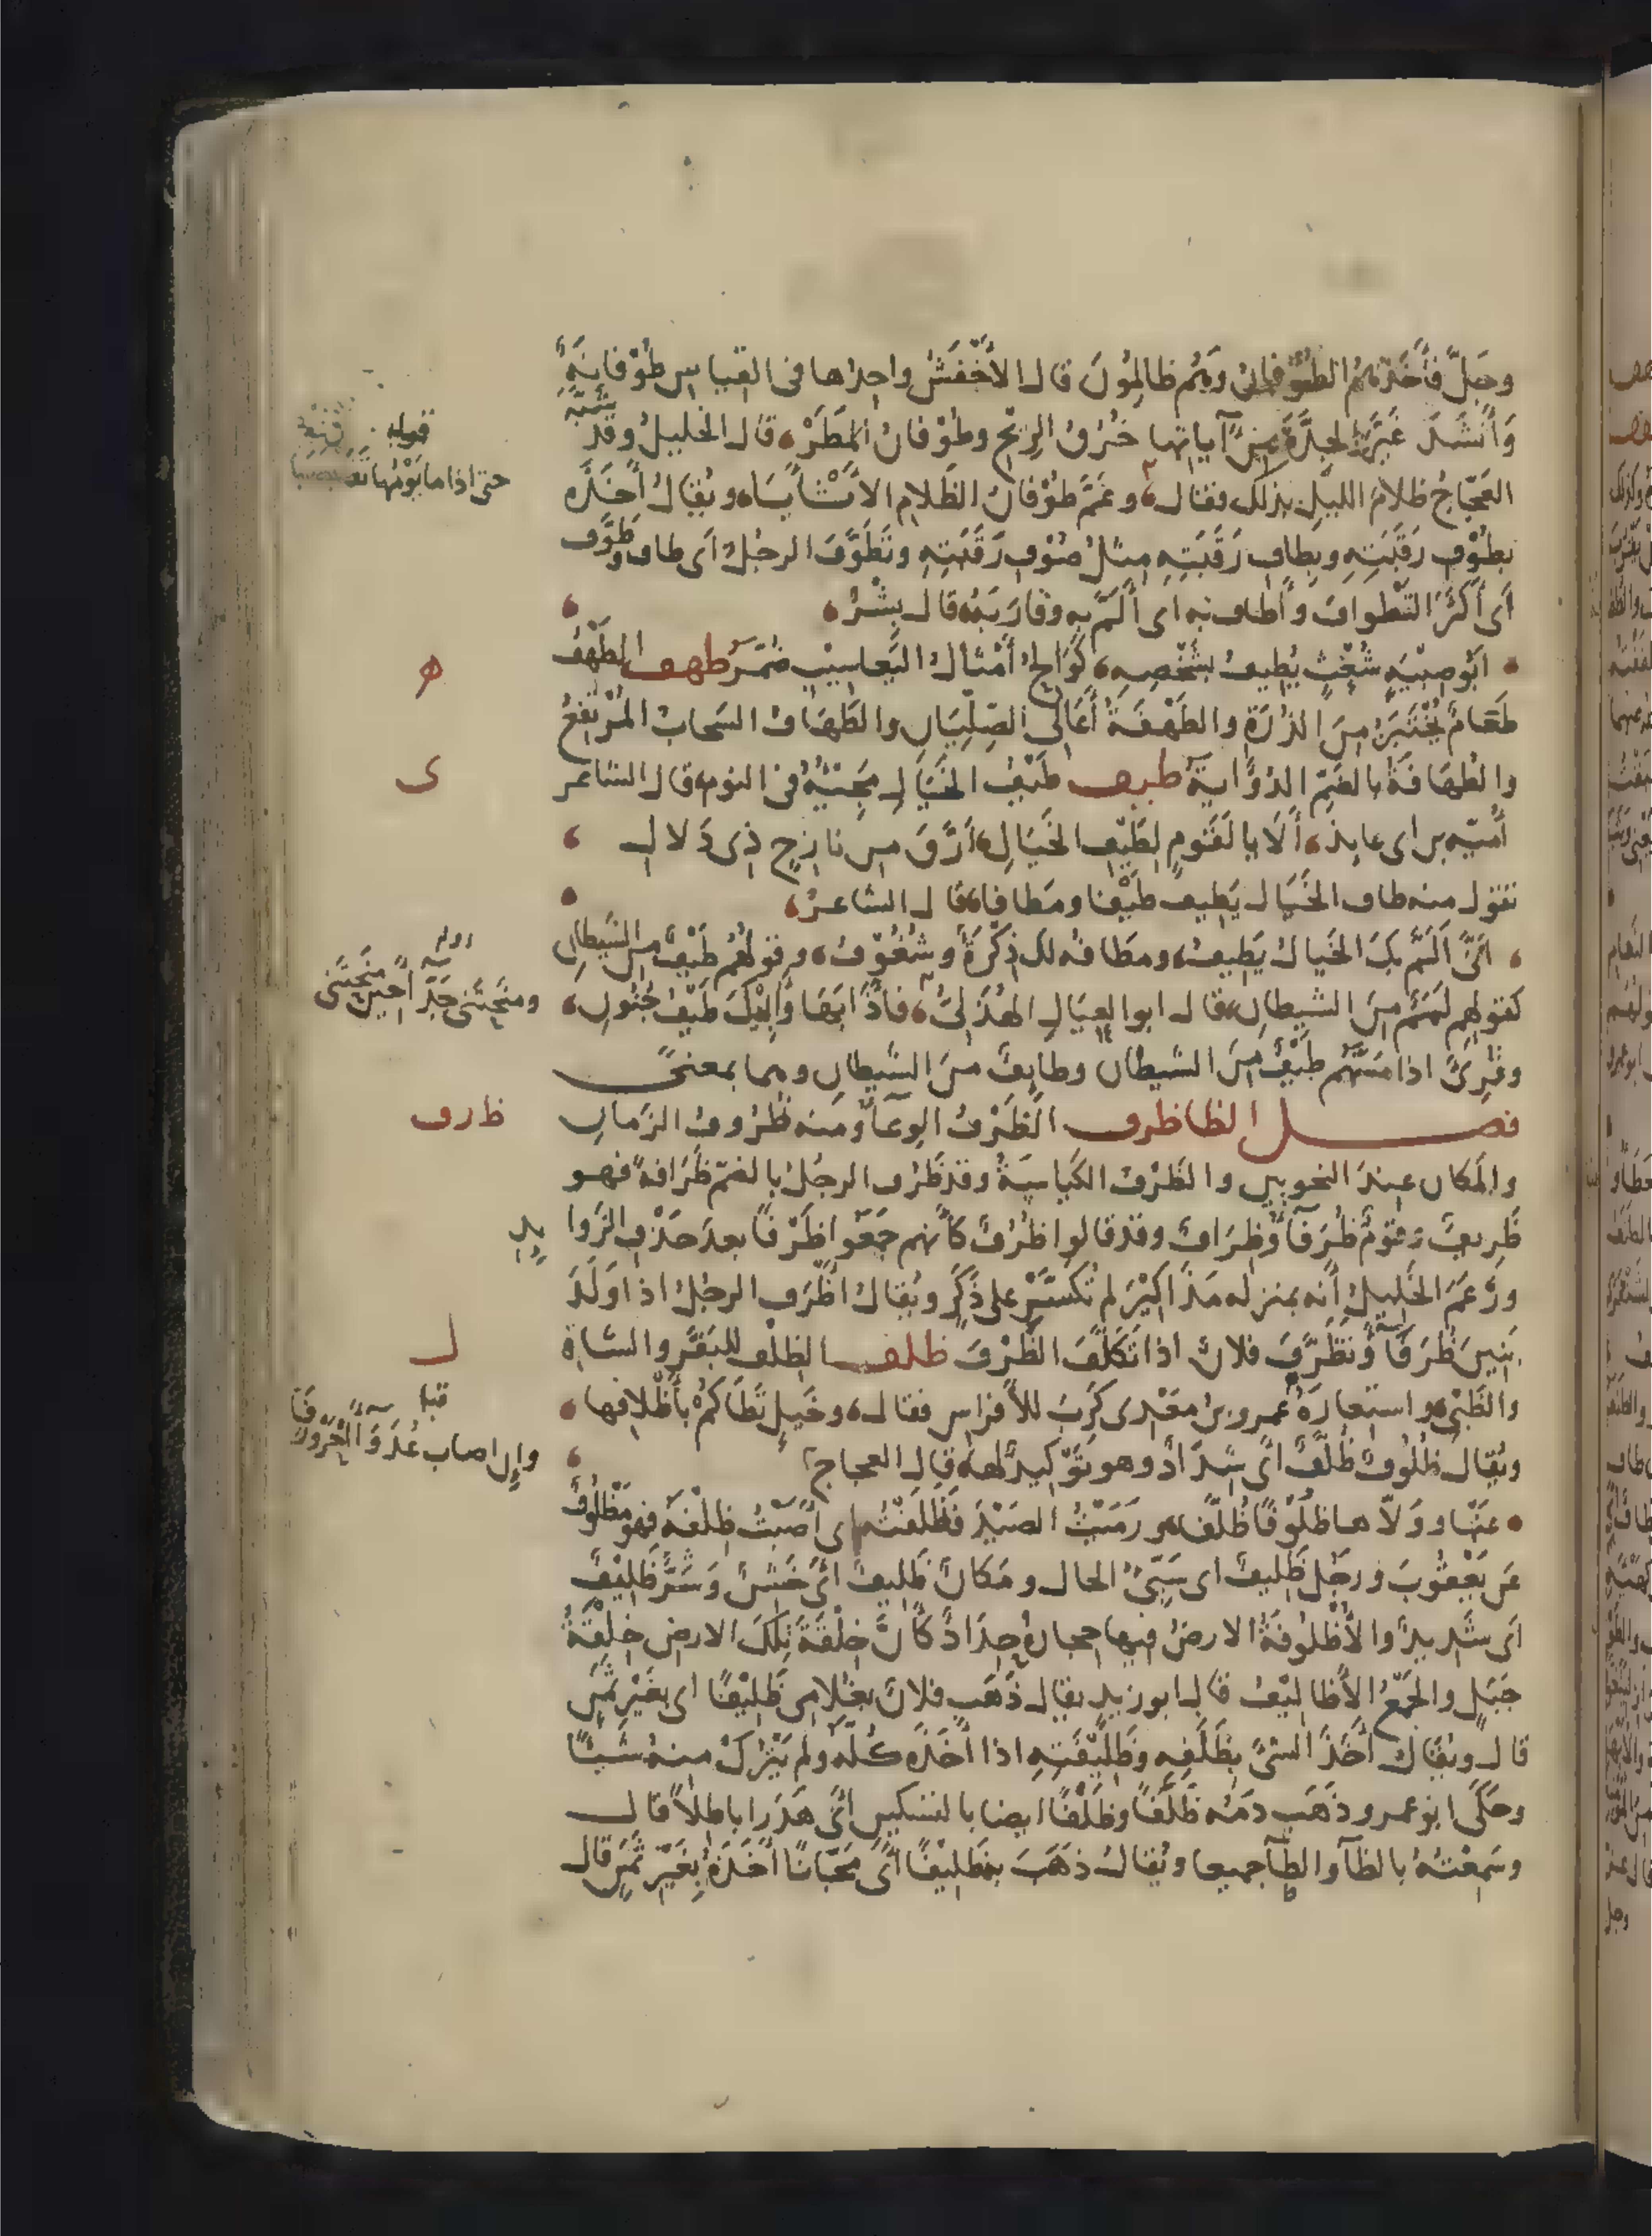 وجَلَّ فَأَخَذَهُمُ الطُّوفَانُ وَهُم ظَالِمُونَ قال الأَخْفَشُ واحِدُها في القِيَاسِ طُوْفَانَةٌ
وَأَنْشَدَ غَيَّرَ الجِدَّةَ مِنْ آيَاتِها خُرُقُ الرِّيحِ وطُوْفَانُ المَطَرْ، قال الخليلُ وقد شَبَّهَ
العَجَّاجُ ظلامَ الليلِ بذلك فقال، وعَمَّ طُوْفَانُ الظَّلامِ الأَثْأَبَا، ويُقالُ أَخَذَهُ
بطُوْفِ رَقَبَتِهِ وبِطَافِ رَقَبَتِهِ مِثْلُ صُوْفِ رَقَبَتِهِ وتَطَوَّفَ الرجُلُ أي طاف وطَوَّفَ
أي أَكْثَرَ التَّطْوافَ وأَطَافَ به أي أَلَمَّ بِهِ وقَارَبَهُ، قال بِشْرٌ،
أَبُو صِبْيَةٍ شُعْثٍ يُطِيفُ بشَخْصِهِ، كَوَالِحُ أَمْثَالُ اليَعَاسِيْبِ ضُمَّرُ طهف الطَّهْفُ
طَعَامٌ يُخْتَبَزُ مِنَ الذُّرَةِ والطَّهْفَةُ أَعَالِي الصِّلِّيَانِ والطَّهَافُ السَّحَابُ المُرْتَفِعُ
والطُّهَافَةُ بالضَّمِّ الذُّؤَابَةُ طيف طَيْفُ الخَيَالِ مَجِيئُهُ في النوم، قال الشاعر
أُمَيَّة بن أبي عايذ، أَلَا يا لَقَومٍ لِطَيْفِ الخَيَالِ، أَرَّقَ من نَازِحٍ ذي دَلالِ
تقول منه طاف الخَيَال يَطِيفُ طَيْفًا ومَطافًا، قال الشاعرُ،
أَنَّى أَلَمَّ بِكَ الخَيالُ يَطِيفُ، ومَطَافُه لك ذِكْرَةٌ وشُغُوفُ، وقولُهُم طَيْفٌ من الشيطانِ
كقولِهِم لَمَمٌ مِنَ الشيطانِ، قال أبو العِيَالِ الهُذَلِيُّ، فإذا بِهَا وأَبِيْكَ طَيْفُ جُنُونِ،
وقُرِئَ اذا مَسَّهُم طَيْفٌ مِنَ الشيطان وطايِفٌ منَ الشَّيطانِ وهما بمعنىً
فصل الظا ظرف الظَّرْفُ الوِعَآءُ ومنه ظُرُوفُ الزَّمانِ
والمَكان عِندَ النحويين والظَّرْفُ الكَيَاسَةُ وقد ظَرُفَ الرجُلُ بالضمّ ظَرَافةً فهو
ظَرِيفٌ وَقومٌ ظُرَفَآءُ وظِرَافٌ وقد قالوا ظُرُفٌ كأنهم جَمَعُوا ظَرْفًا بعدَ حَذْفِ الزَّوايدِ
وزَعَمَ الخَلِيلُ أنه بمنزله مَذَاكِيْرَ لم تُكَسَّرْ على ذَكَرٍ ويُقالُ أَظْرَفَ الرجُلُ اذا وَلَدَ
بَنِينَ ظُرَفَآءَ وتَظَرَّفَ فلانٌ اذا تَكَلَّفَ الظَّرْفَ ظلف الظِلْفُ للبَقَرَةِ والشاةِ
والظَّبْيِ، واستَعَارَهُ عمرو بنُ مَعْدِي كَرِبَ للأفراسِ فقال، وخَيْلٍ تَطَأكُمْ بأَظْلافِها،
ويُقالُ ظُلُوفٌ ظُلَّفٌ أي شِدَادٌ وهو تَوْكِيدٌ لها، قال العجاج
عَنْها ووَلَّاها ظُلُوْفًا ظُلَّفا، ورَمَيْتُ الصَيْدَ فَظَلَفْتُه اي أَصَبْتُ ظِلْفَهُ فهو مَظْلُوفٌ
عَن يَعْقُوبَ ورجُلٌ ظَلِيفٌ اي سَيِّئُ الحال ومَكانٌ ظَلِيفٌ أَي خَشِنٌ وَشَرٌّ ظَلِيْفٌ
أي شَدِيدٌ والأُظْلُوفَةُ الارضُ فيها حجارةٌ حِدَادٌ كَأَنَّ خِلْقَةَ تِلْكَ الارضِ خِلْقَةُ
جَبَلٍ والجَمْعُ الأَظَالِيْفُ قال ابو زيدٍ يقال ذَهَبَ فلانٌ بغُلامِي ظَلِيْفًا أي بغَيْرِ ثَمَنٍ
قال ويُقالُ أَخَذَ الشيءَ بِظَلَفِهِ وظَلِيْفَتِهِ اذا أَخَذَهُ كُلَّهُ ولم يَتْرُكْ منهُ شَيئًا
وحَكَى ابو عمرو ذَهَبَ دَمُه ظَلَفًا وظَلْفًا ايضا بالتسكين أَي هَدَرًا باطِلًا قال
وسَمِعْتُهُ بالظآ والطآ جميعا ويُقالُ ذَهَبَ به ظَلِيفًا أَيْ مَجَّانًا أَخَذَهُ بِغَيْرِ ثَمَنٍ قال
قوله
حتى اذا ما يَوْمُها
ه
ى
اوله
ومَنَحْتَنِي جَدَّآءَ حِينَ مَنَحْتَنِي
ظ ر ف
ل
قبله
وإن اصاب عُدَوَآءَ احْرَوْرَفَا